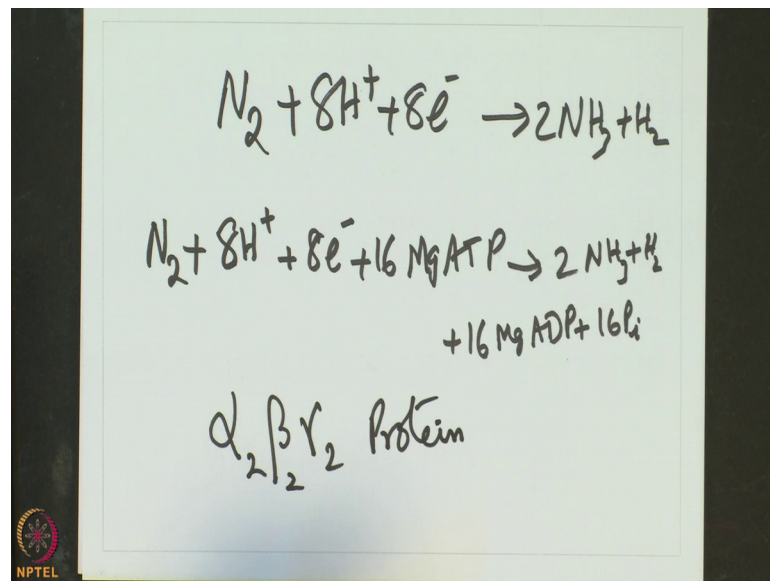 N₂ + 8H⁺ + 8e⁻ → 2NH₃ + H₂
N₂ + 8H⁺ + 8e⁻ + 16 MgATP → 2 NH₃ + H₂
+ 16 MgADP + 16Pi
α₂β₂γ₂ Protein
NPTEL